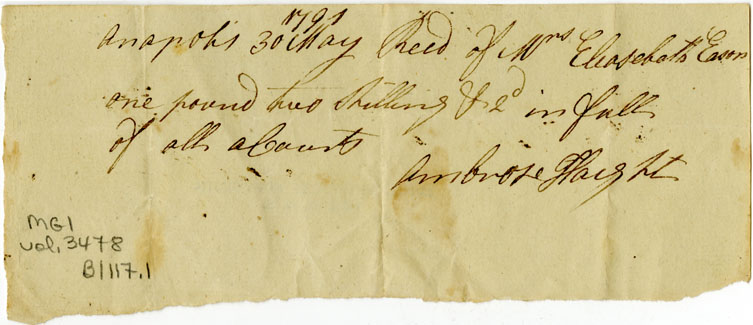 1791
Anapolis 30 May Recd of Mrs Eleasebath Eason
one pound two shilling & 2d in full
of all aCounts
Ambrose Haight
MG1
vol. 3478
B/117.1